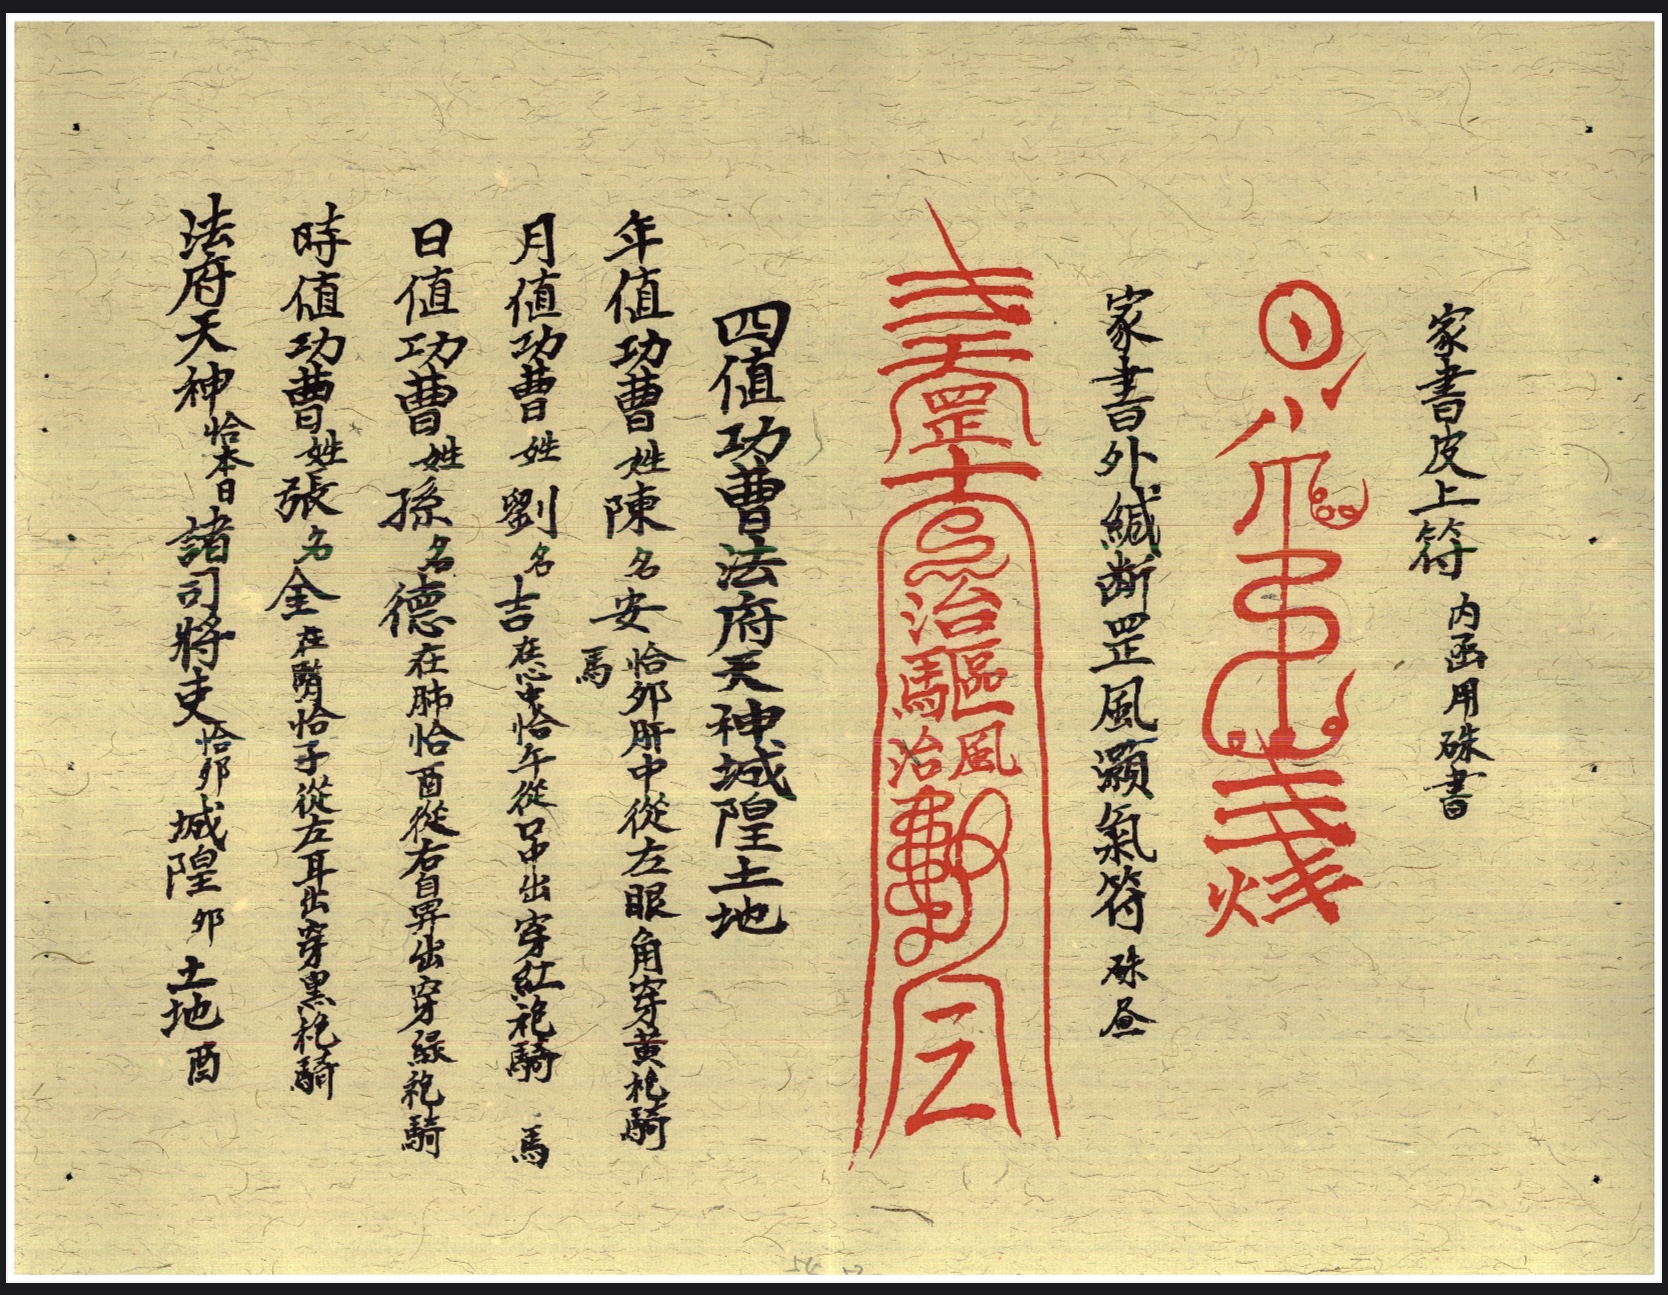 家書皮上符 内函用硃書
家書外緘斷罡風灝氣符 硃
罡
治
驅風
治
四值功曹法府天神城隍土地
年值功曹姓陳名安恰卯肝中從左眼角穿黃袍騎馬
月值功曹姓劉名吉在心中恰午從口中出穿紅袍騎馬
日值功曹姓孫名德在肺恰酉從右鼻出穿綠袍騎
時值功曹姓張名金在腎恰子從左耳出穿黑袍騎
法府天神恰本日諸司將吏恰卯城隍卯土地酉